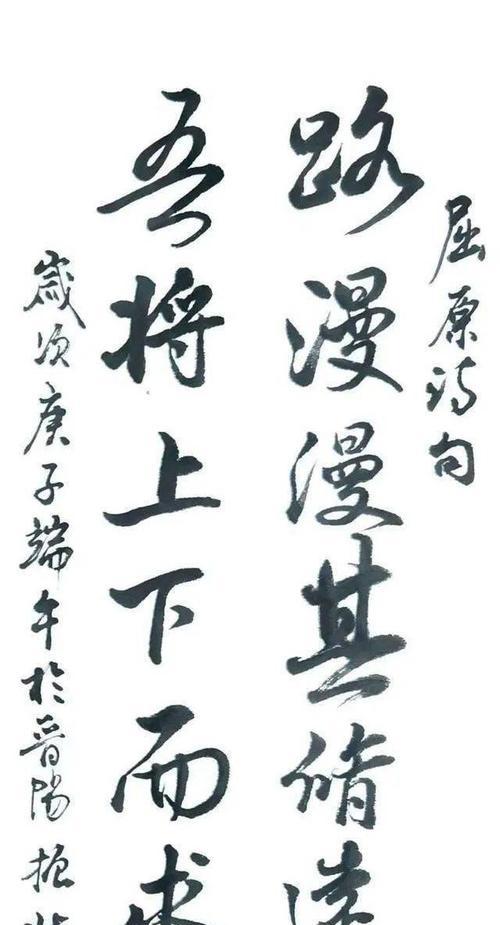 屈原诗句
路漫漫其脩远
吾将上下而求
歲次庚子端午於晋陽振